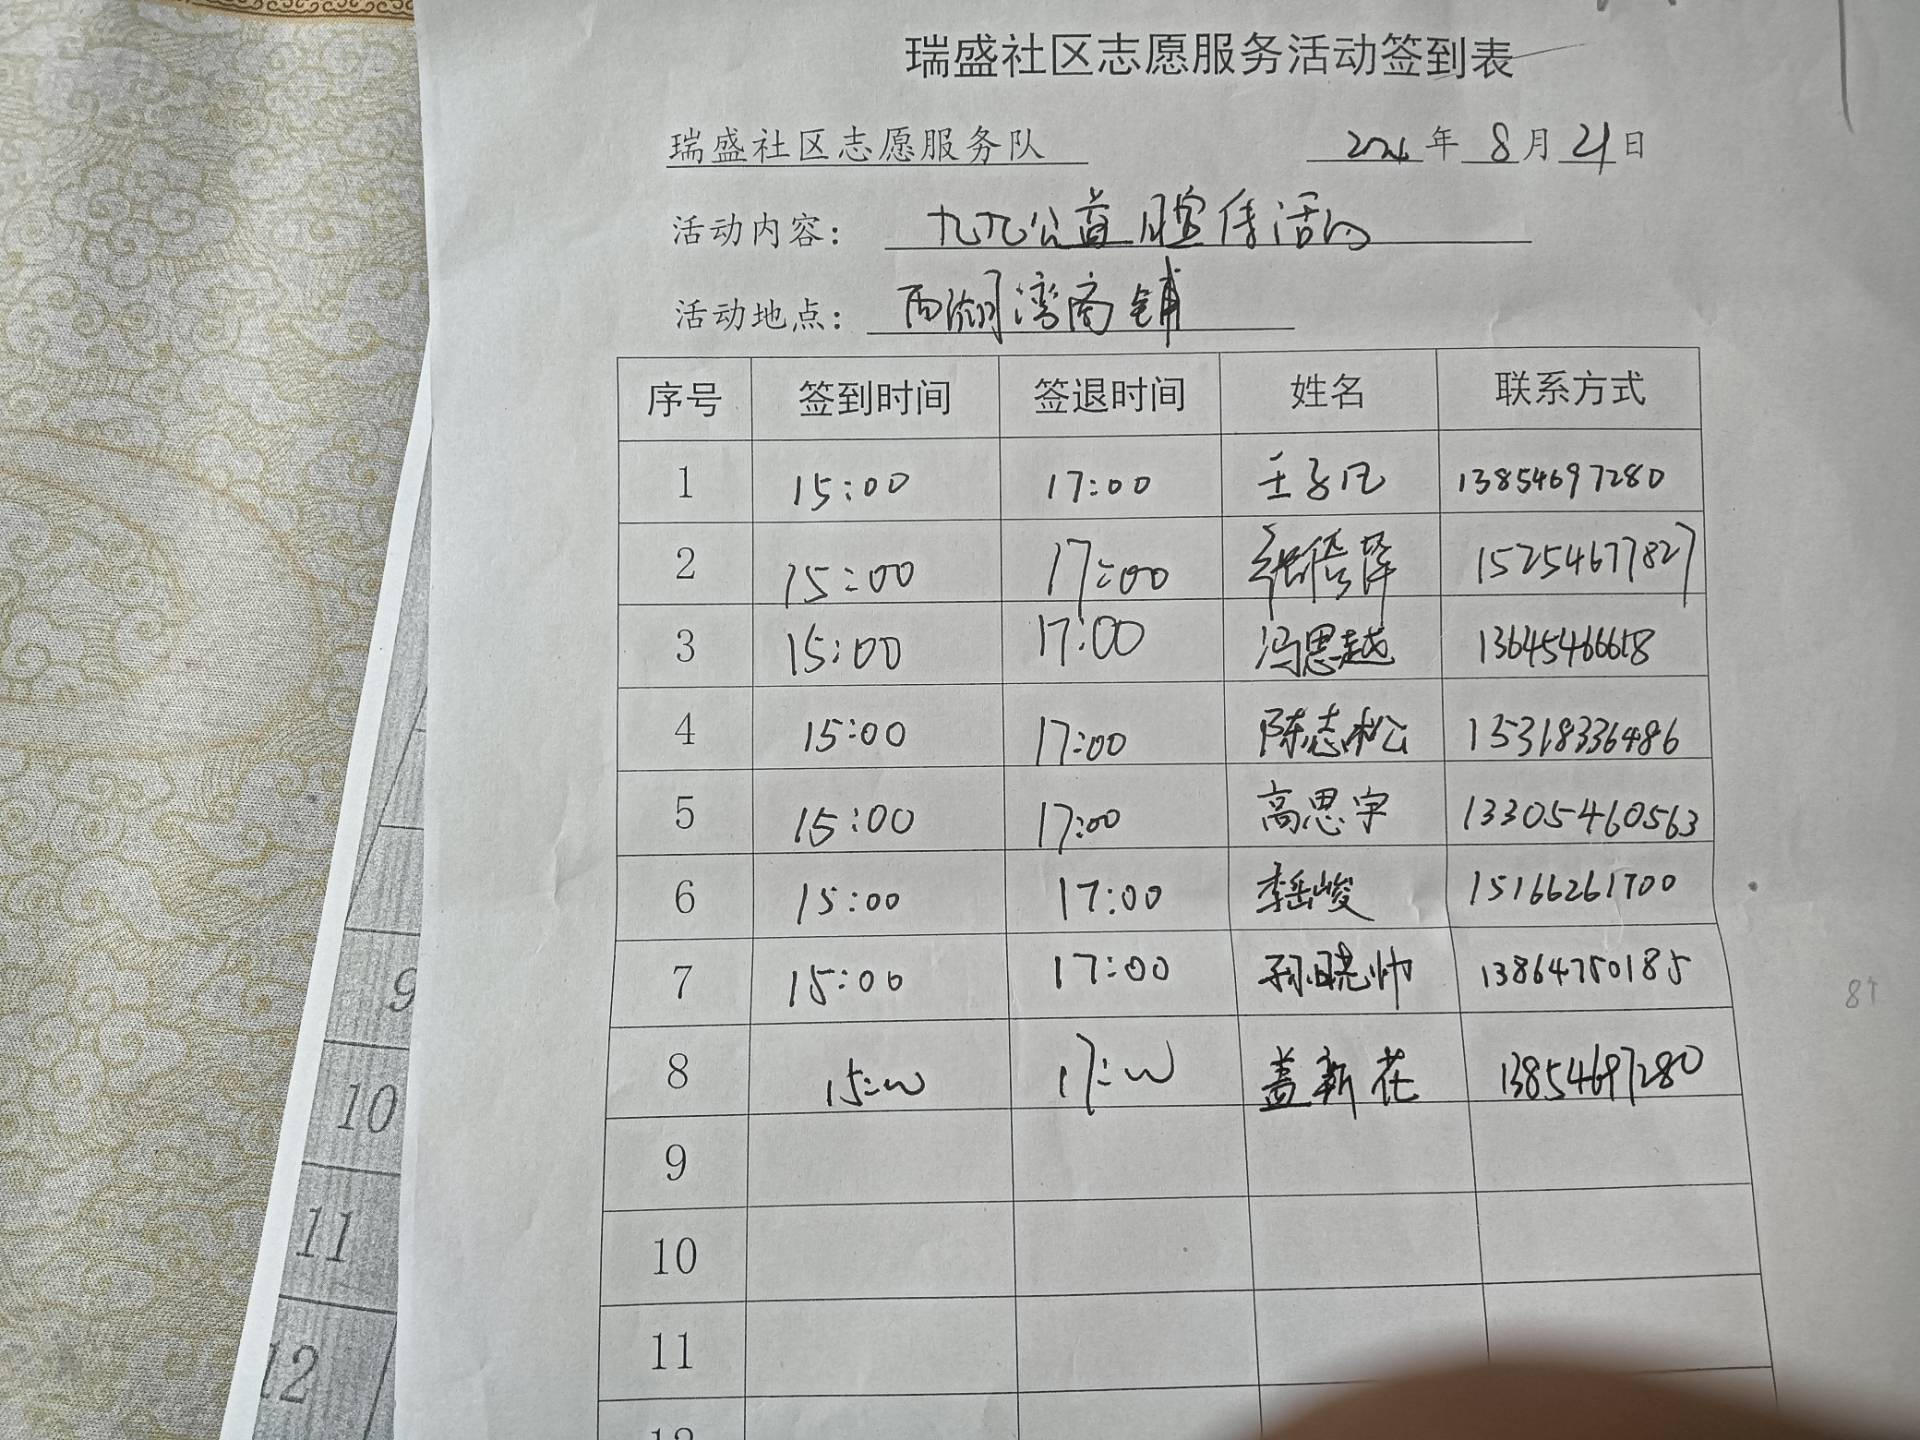 瑞盛社区志愿服务活动签到表
瑞盛社区志愿服务队 年 8 月 21 日
活动内容： 九九公益日宣传活动
活动地点： 西湖湾商铺
序号 签到时间 签退时间 姓名 联系方式
1 15:00 17:00 王子凡 13854697280
2 15:00 17:00 张 泽 15254677827
3 15:00 17:00 冯思越 13645466618
4 15:00 17:00 陈志松 15318336486
5 15:00 17:00 高思宇 13305460563
6 15:00 17:00 李岳峻 15166261700
7 15:00 17:00 孙晓帅 13864750185
8 15:00 17:00 盖新花 13854697280
9
10
11
9
10
11
12